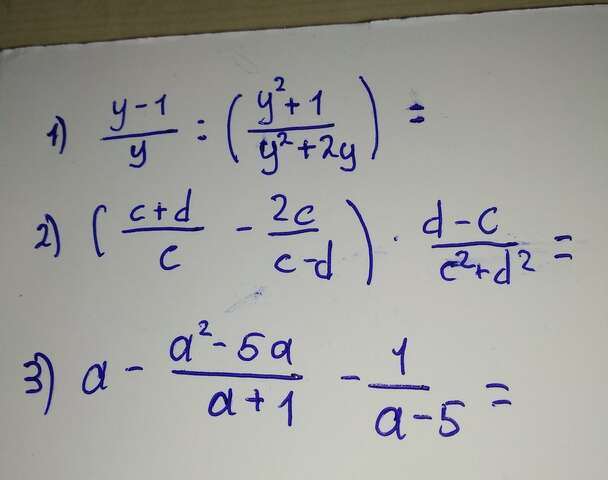 1) \frac{y-1}{y} : \left( \frac{y^2+1}{y^2+2y} \right) =
2) \left( \frac{c+d}{c} - \frac{2c}{c-d} \right) \cdot \frac{d-c}{c^2+d^2} =
3) a - \frac{a^2-5a}{a+1} - \frac{1}{a-5} =